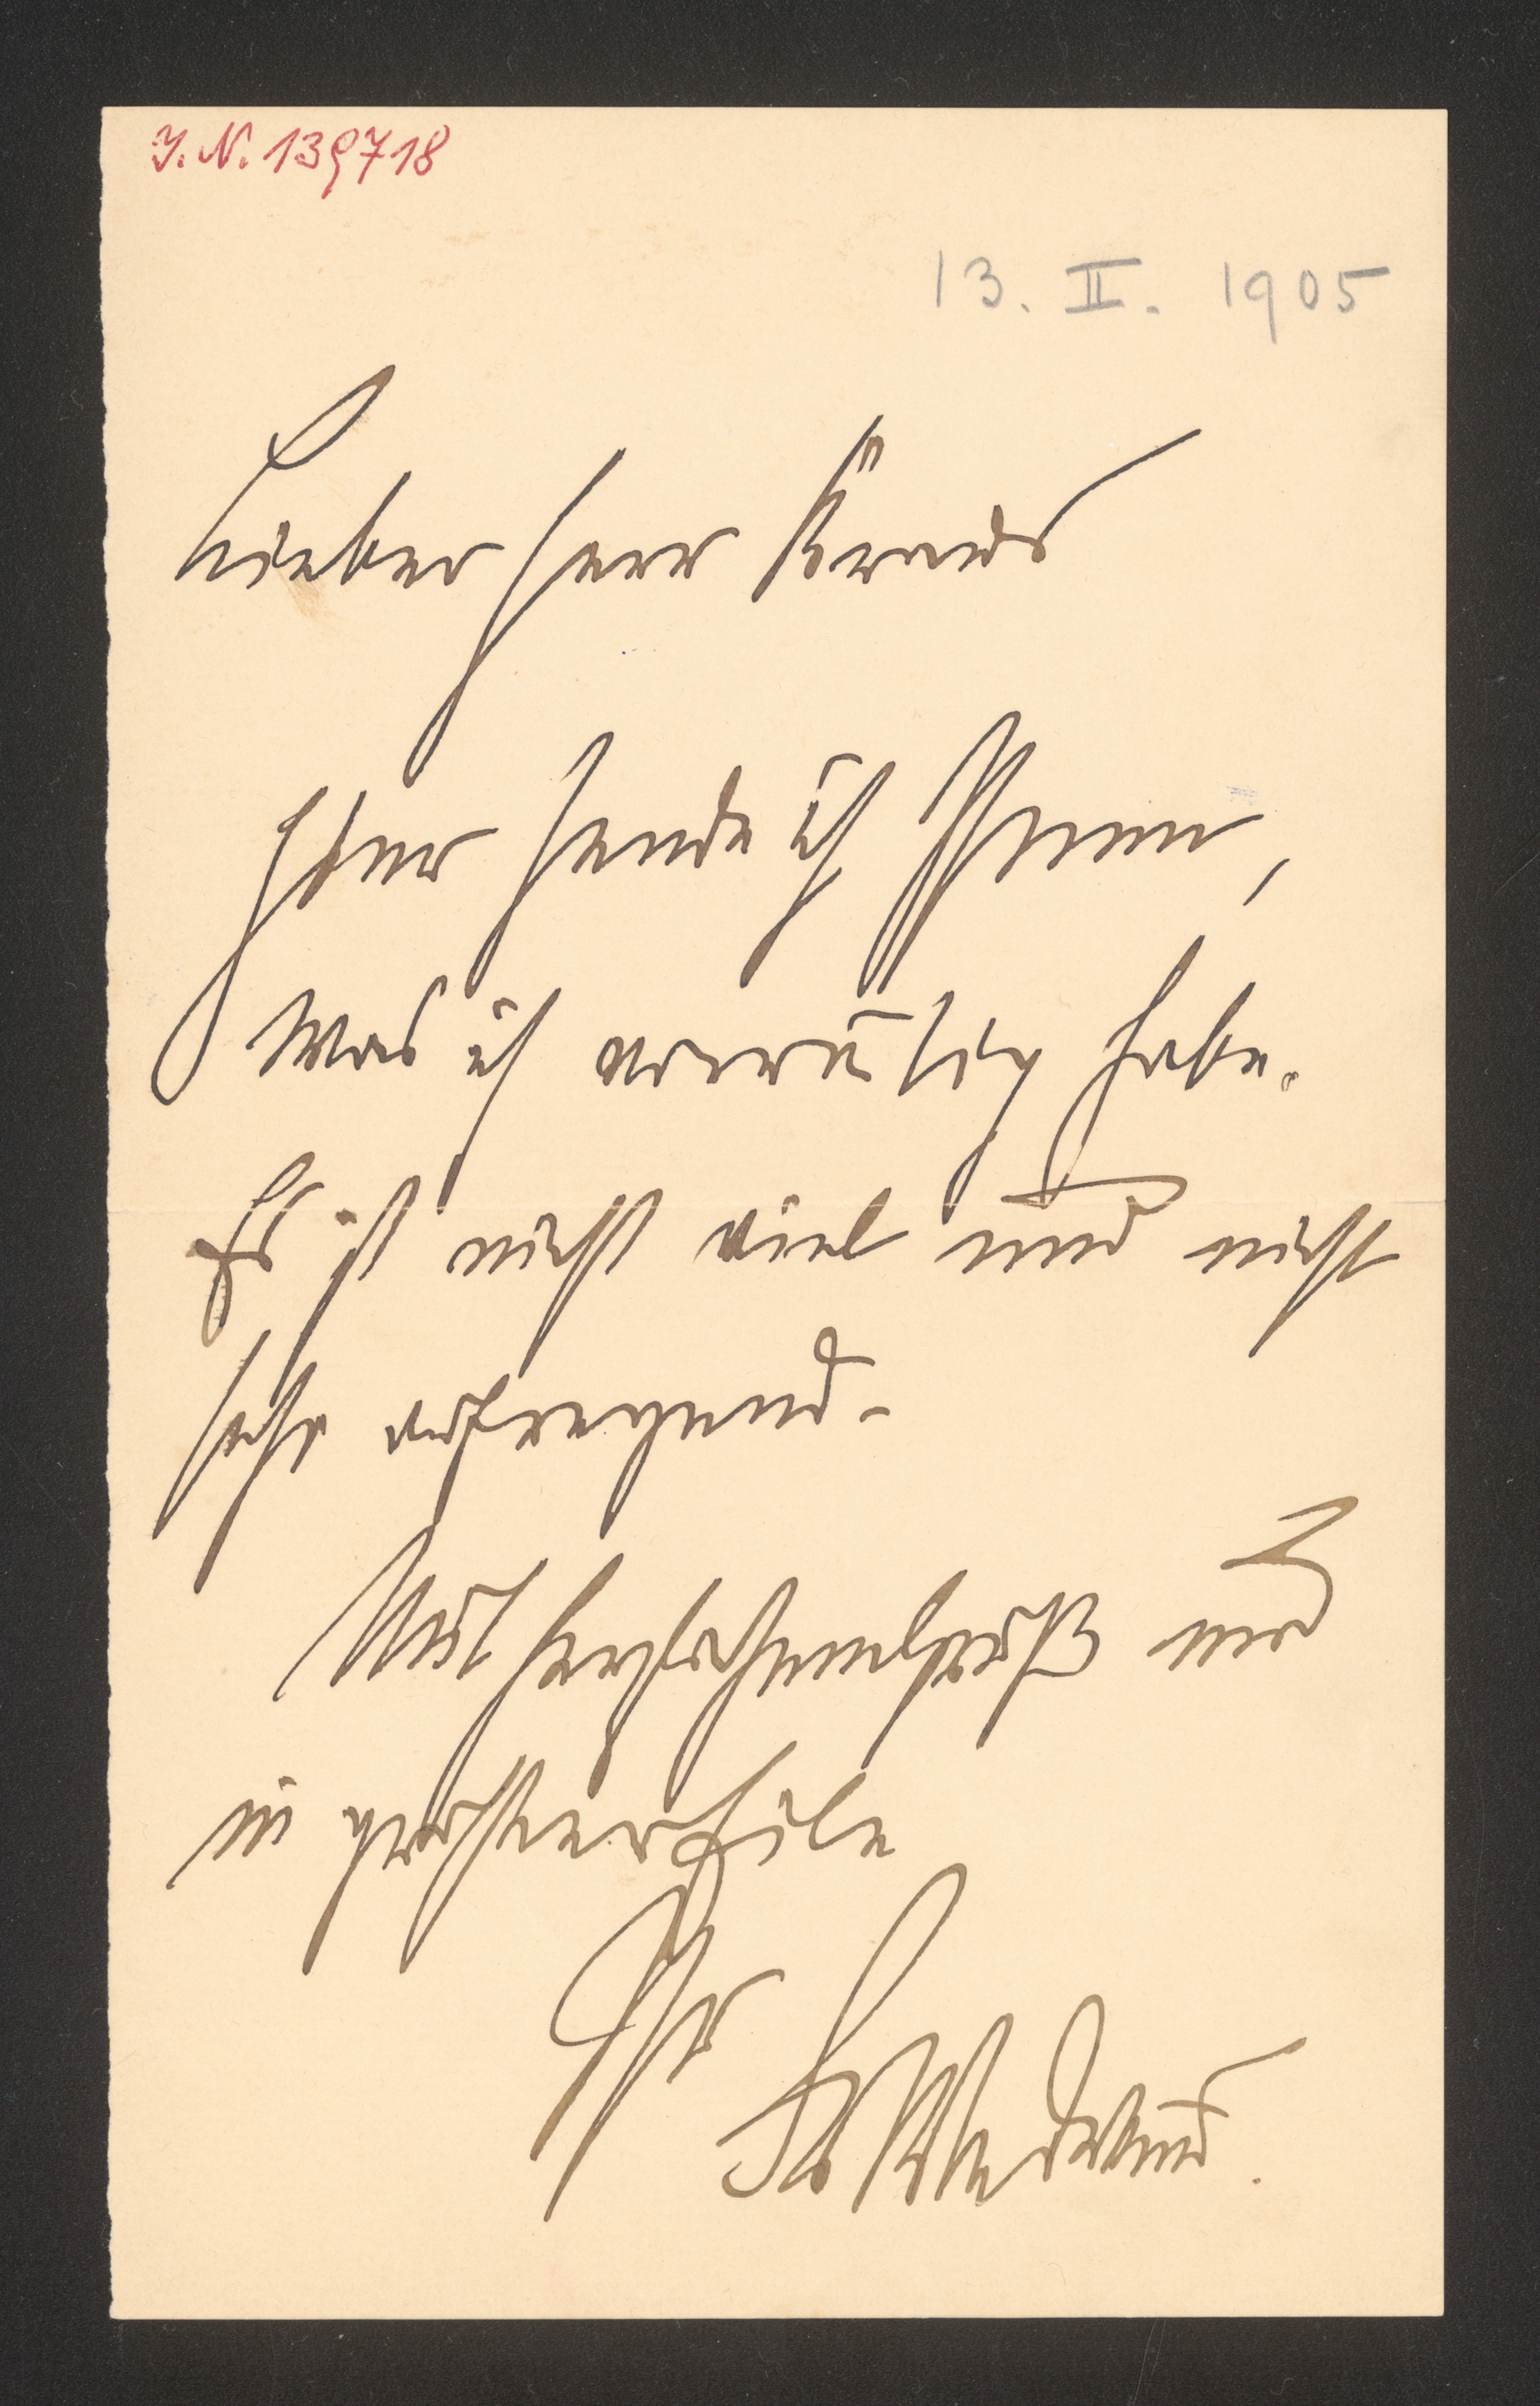 J. N. 139718
13. II. 1905
Lieber Herr Kraus
hier sende ich Ihnen,
was ich vorräthig habe.
Es ist nicht viel und nicht
sehr aufregend.
Mit herzlichem Gruß und
in größter Eile
Ihr
Fr Wedekind.